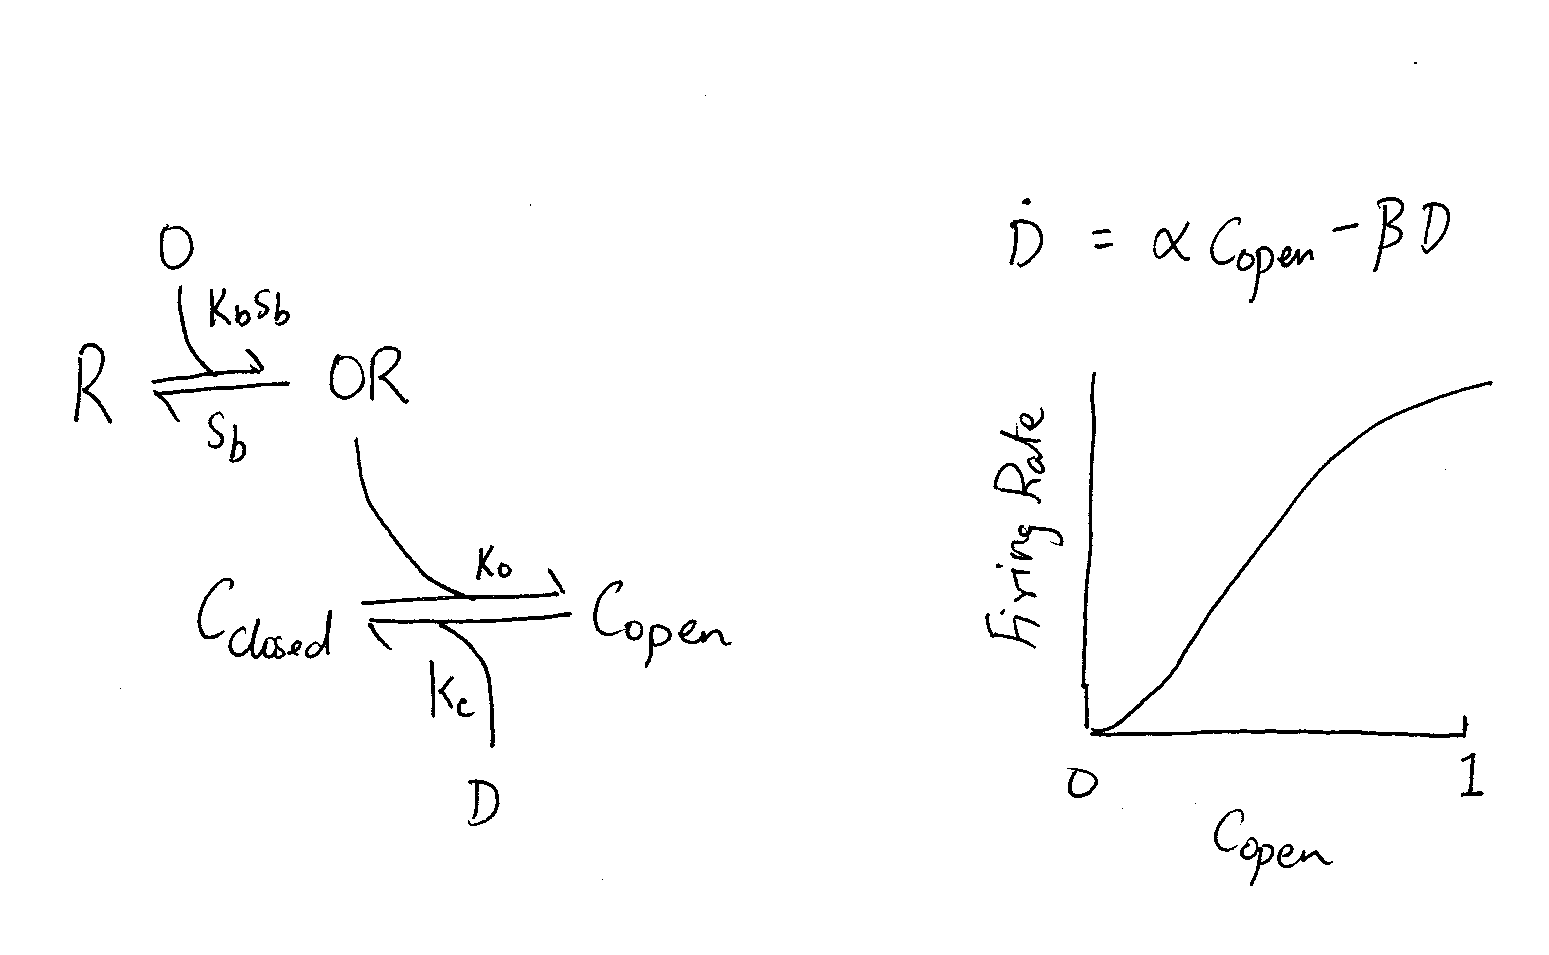 O
K_b S_b
R ⇌ OR
S_b
K_o
C_closed ⇌ C_open
K_c
D
Ḋ = α C_open - β D
Firing Rate
0 1
C_open